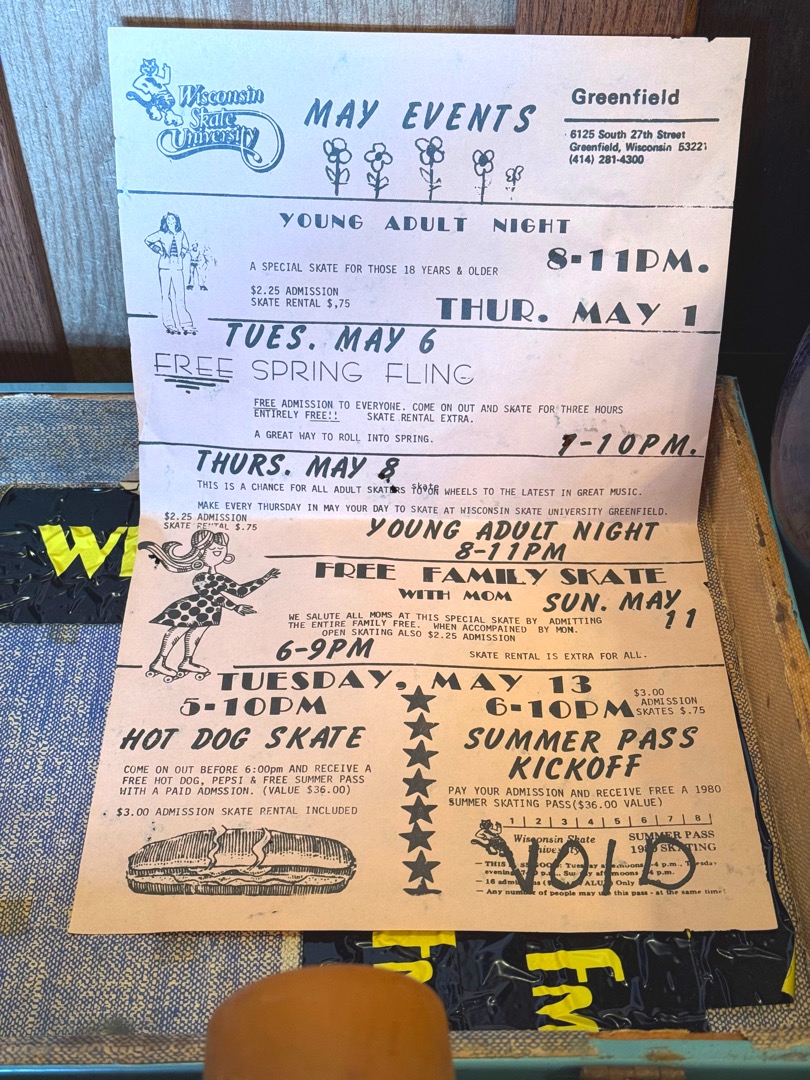 Wisconsin
Skate
University
MAY EVENTS
Greenfield
6125 South 27th Street
Greenfield, Wisconsin 53221
(414) 281-4300
YOUNG ADULT NIGHT
8-11PM.
A SPECIAL SKATE FOR THOSE 18 YEARS & OLDER
$2.25 ADMISSION
SKATE RENTAL $,75
THUR. MAY 1
TUES. MAY 6
FREE SPRING FLING
FREE ADMISSION TO EVERYONE. COME ON OUT AND SKATE FOR THREE HOURS
ENTIRELY FREE!! SKATE RENTAL EXTRA.
A GREAT WAY TO ROLL INTO SPRING.
7-10PM.
THURS. MAY 8
THIS IS A CHANCE FOR ALL ADULT SKATERS TO skate ON WHEELS TO THE LATEST IN GREAT MUSIC.
MAKE EVERY THURSDAY IN MAY YOUR DAY TO SKATE AT WISCONSIN SKATE UNIVERSITY GREENFIELD.
$2.25 ADMISSION
SKATE RENTAL $.75
YOUNG ADULT NIGHT
8-11PM
FREE FAMILY SKATE
WITH MOM SUN. MAY 11
WE SALUTE ALL MOMS AT THIS SPECIAL SKATE BY ADMITTING
THE ENTIRE FAMILY FREE. WHEN ACCOMPAINED BY MON.
OPEN SKATING ALSO $2.25 ADMISSION
6-9PM
SKATE RENTAL IS EXTRA FOR ALL.
TUESDAY, MAY 13
5-10PM
HOT DOG SKATE
COME ON OUT BEFORE 6:00pm AND RECEIVE A
FREE HOT DOG, PEPSI & FREE SUMMER PASS
WITH A PAID ADMSSION. (VALUE $36.00)
$3.00 ADMISSION SKATE RENTAL INCLUDED
6-10PM
$3.00
ADMISSION
SKATES $.75
SUMMER PASS
KICKOFF
PAY YOUR ADMISSION AND RECEIVE FREE A 1980
SUMMER SKATING PASS($36.00 VALUE)
1 2 3 4 5 6 7 8
Wisconsin Skate
University
SUMMER PASS
1980 SKATING
VOID
— THIS IS GOOD: Tuesday afternoons 4 p.m., Tuesday
evening p.m., Sunday afternoons 4 p.m.
— 16 VALUE Only
— Any number of people may use this pass - at the same time!
WI
Em